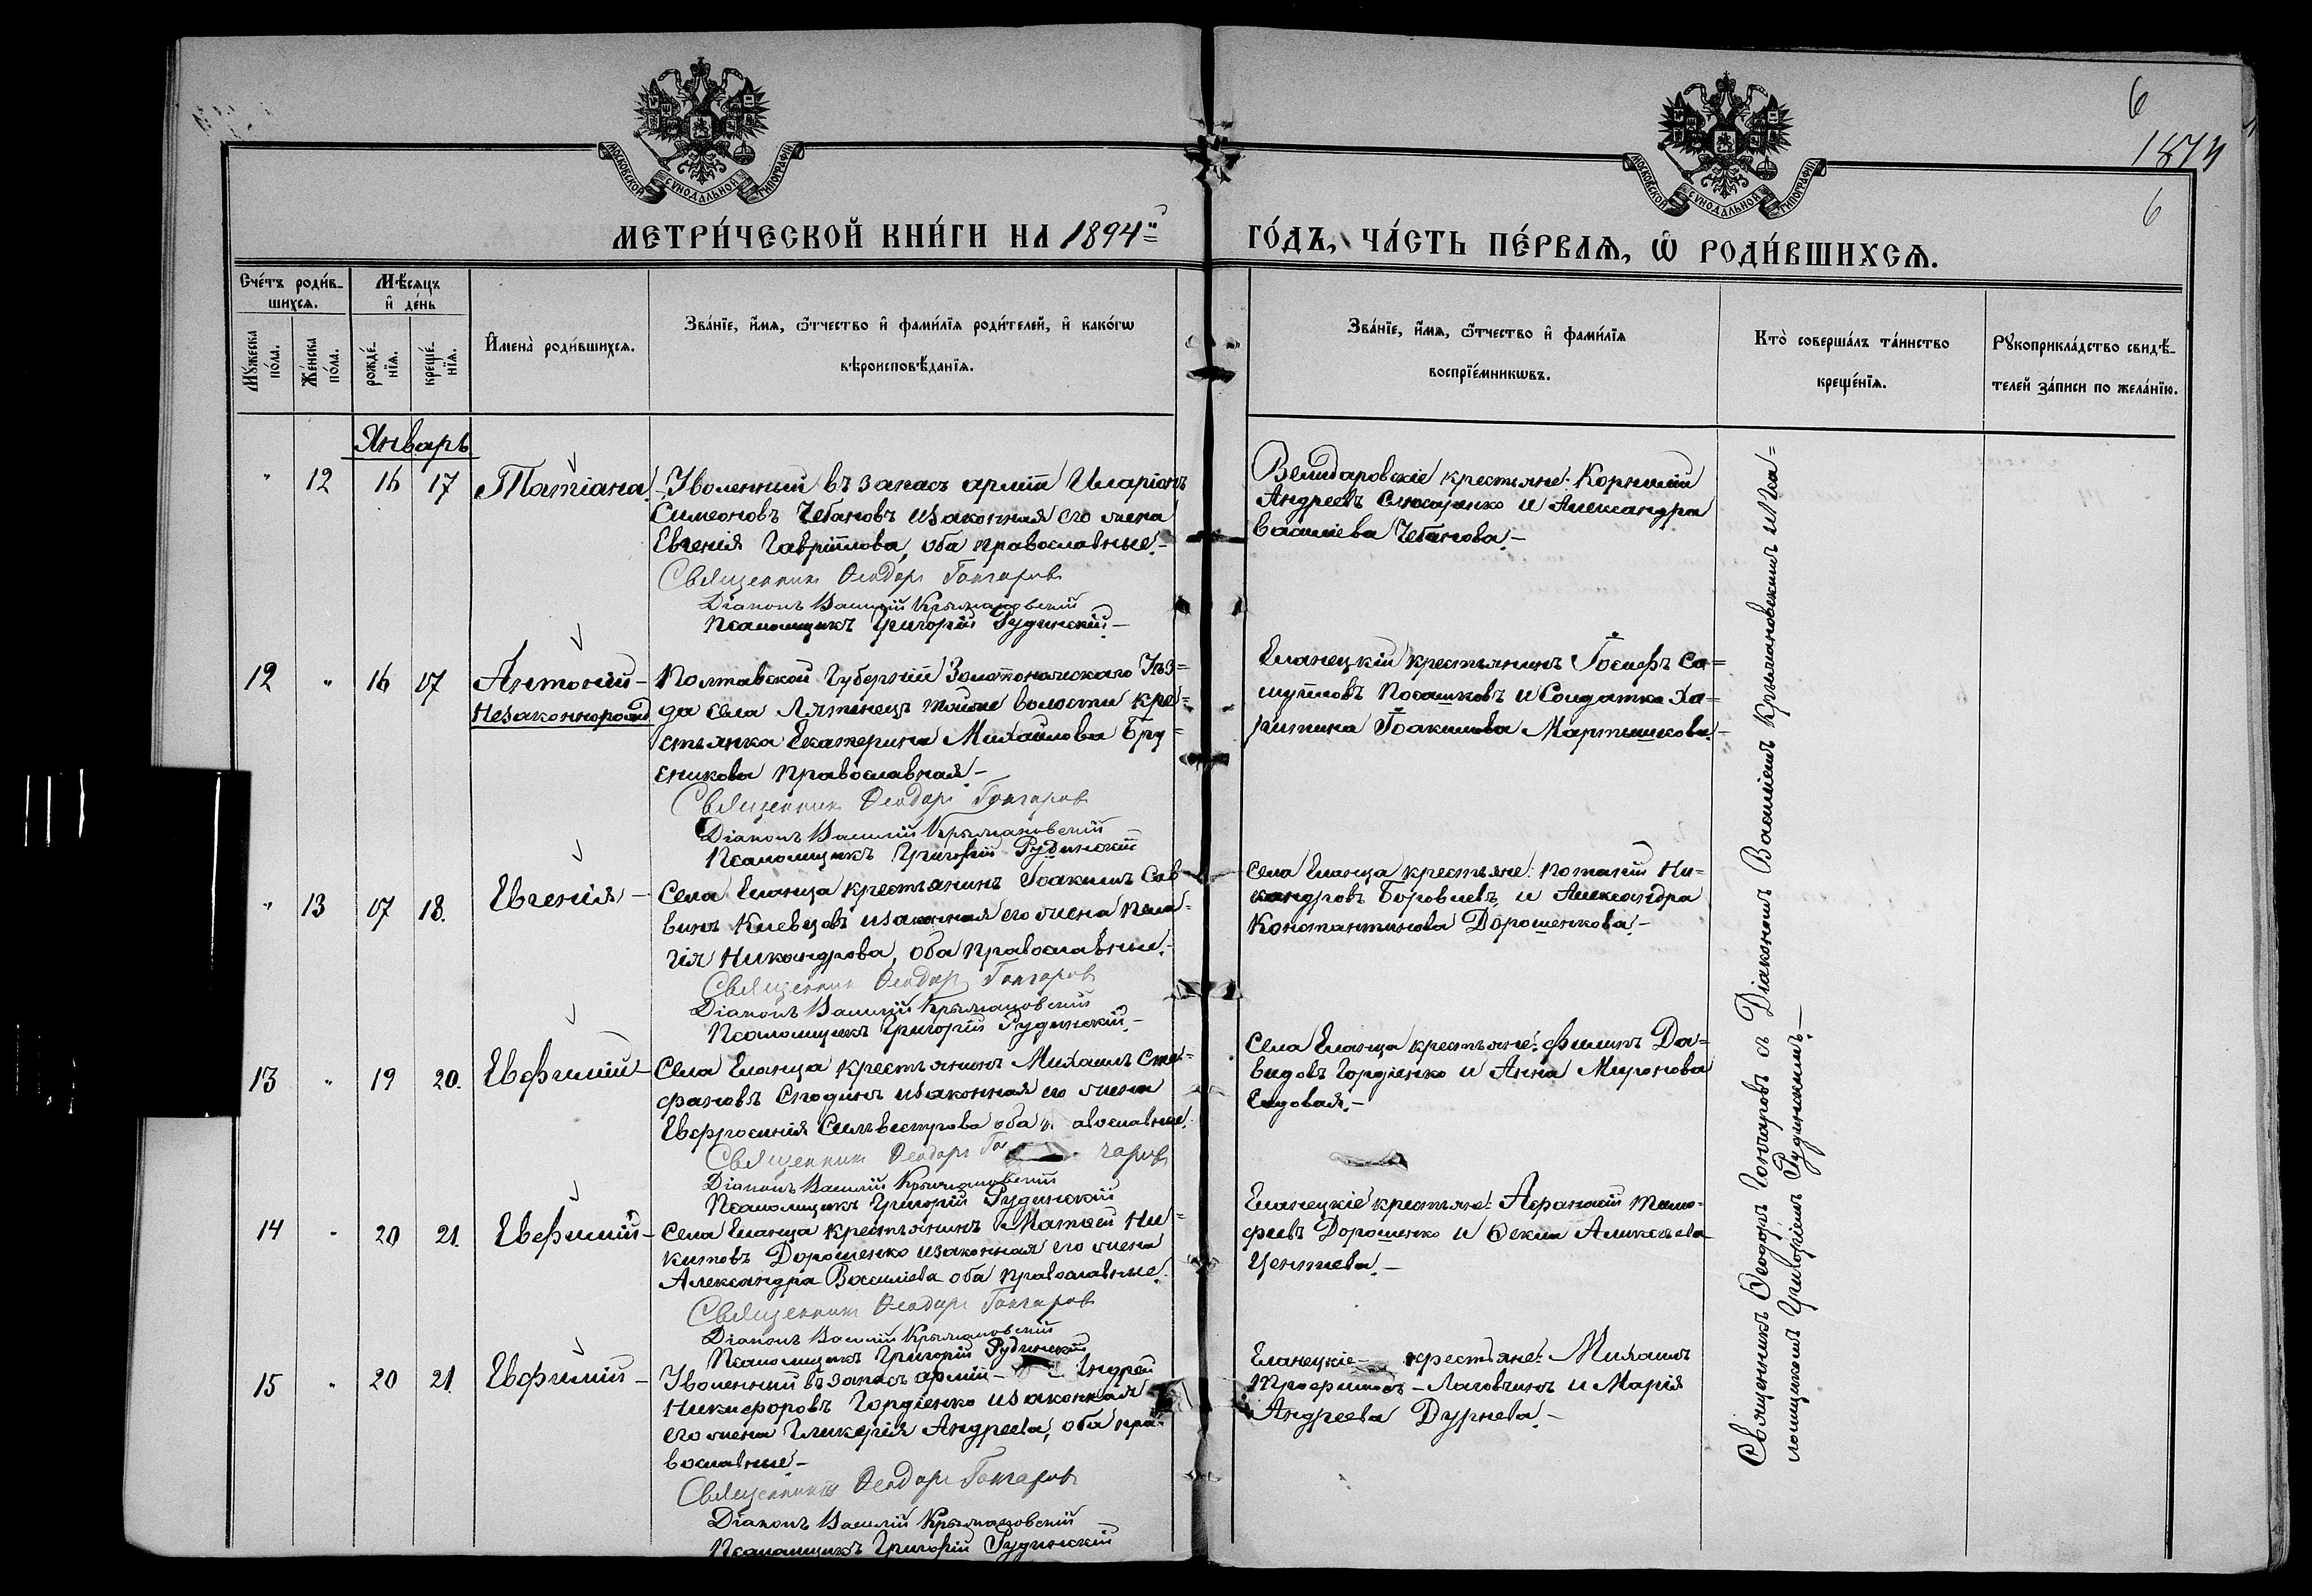 6
1874
6
МОСКОВСКОЙ СѴНОДАЛЬНОЙ ТИПОГРАФІИ
МОСКОВСКОЙ СѴНОДАЛЬНОЙ ТИПОГРАФІИ
МЕТРИ́ЧЕСКОЙ КНИ́ГИ НА 1894й
ГО́ДЪ, ЧА́СТЬ ПЕ́РВАѦ, Ѡ РОДИ́ВШИХСѦ.
Счéтъ роди́в-
шихсѧ.
Мѣ́сѧцъ
и де́нь
Мꙋ́жеска
по́ла.
Же́нска
по́ла.
рожде́-
нїѧ.
креще́-
нїѧ.
Имена̀ роди́вшихсѧ.
Зва́нїе, и́мѧ, ѻ́тчество и фами́лїѧ роди́телей, и како́гѡ
вѣроисповѣ́данїѧ.
Зва́нїе, и́мѧ, ѻ́тчество и фами́лїѧ
воспрїе́мникѡвъ.
Кто̀ соверша́лъ та́инство
креще́нїѧ.
Рꙋкоприкла́дство свидѣ́-
телей за́писи по жела́нїю.
Январь
" 12 16 17 Татіана - Уволенный въ запасъ арміи Иларіонъ
Симеоновъ Чебановъ и законная его жена
Евгенія Гавріилова, оба православные.-
Священникъ Ѳеодоръ Гончаровъ
Діаконъ Василій Крыжановскій
Псаломщикъ Григорій Рудинскій.-
Велидаровскіе крестьяне: Корнилій
Андреевъ Слюсаренко и Александра
Василіева Чебанова.-
12 " 16 17 Антоній -
Незаконнорожд
Полтавской Губерніи Золотоношскаго Уѣз=
да села Лятинецъ тойже волости кре=
стьянка Екатерина Михайлова Бру=
сникова православная.-
Священникъ Ѳеодоръ Гончаровъ
Діаконъ Василій Крыжановскій
Псаломщикъ Григорій Рудинскій
Еланецкій крестьянинъ Іосифъ Са=
муиловъ Посашковъ и Солдатка Ха=
ритина Іоакимова Мартышкова.-
" 13 17 18. Евгенія - Села Еланца крестьянинъ Іоакимъ Сав-
винъ Киевцовъ и законная его жена Пела=
гія Никандрова, оба православные.-
Священникъ Ѳеодоръ Гончаровъ
Діаконъ Василій Крыжановскій
Псаломщикъ Григорій Рудинскій.-
Села Еланца крестьяне: Потапій Ни=
кандровъ Боровлевъ и Александра
Константинова Дорошенкова.-
13 " 19 20. Евфимій - Села Еланца крестьянинъ Михаилъ Сте=
фановъ Сподинъ и законная его жена
Евфросинія Сильвестрова оба п авославные.
Священникъ Ѳеодоръ Гон чаровъ
Діаконъ Василій Крыжановскій
Псаломщикъ Григорій Рудинскій
Села Еланца крестьяне: Филипъ Да=
видовъ Гордіенко и Анна Миронова
14 " 20 21. Евфимій - Села Еланца крестьянинъ Матѳей Ни=
китовъ Дорошенко и законная его жена
Александра Василіева оба православные.
Священникъ Ѳеодоръ Гончаровъ
Діаконъ Василій Крыжановскій
Псаломщикъ Григорій Рудинскій
Еланецкіе крестьяне: Афанасій Тимо=
феевъ Дорошенко и Ѳекла Алексѣева
15 " 20 21. Евфимій - Уволенный въ запасъ арміи - Андрей
Никифоровъ Гордіенко и законная
его жена Гликерія Андреева, оба пра=
вославные.-
Священникъ Ѳеодоръ Гончаровъ
Діаконъ Василій Крыжановскій
Псаломщикъ Григорій Рудинскій
Еланецкіе - крестьяне: Михаилъ
Трофимовъ - Лаговчинъ и Марія
Андреева Дурнева.-
Священникъ Ѳеодоръ Гончаровъ съ Діакономъ Василіемъ Крыжановскимъ и Пса=
ломщикомъ Григоріемъ Рудинскимъ.-